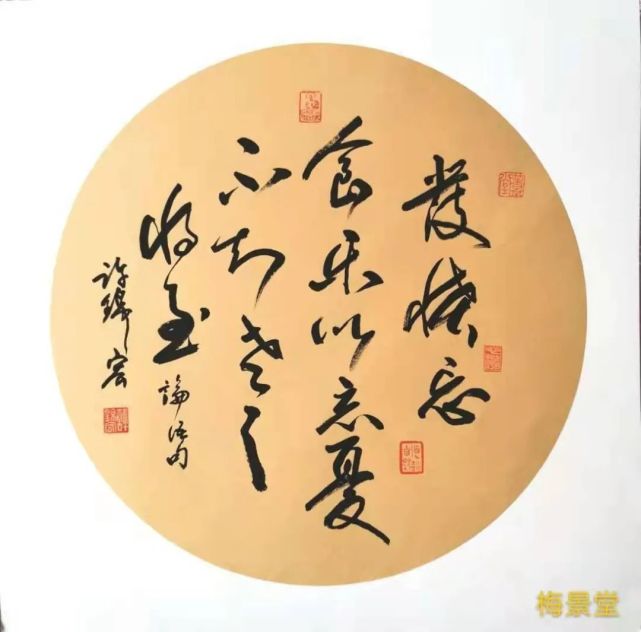 發愤忘
食乐以忘憂
不知老之
将至 論语句
许锦宏
梅景堂